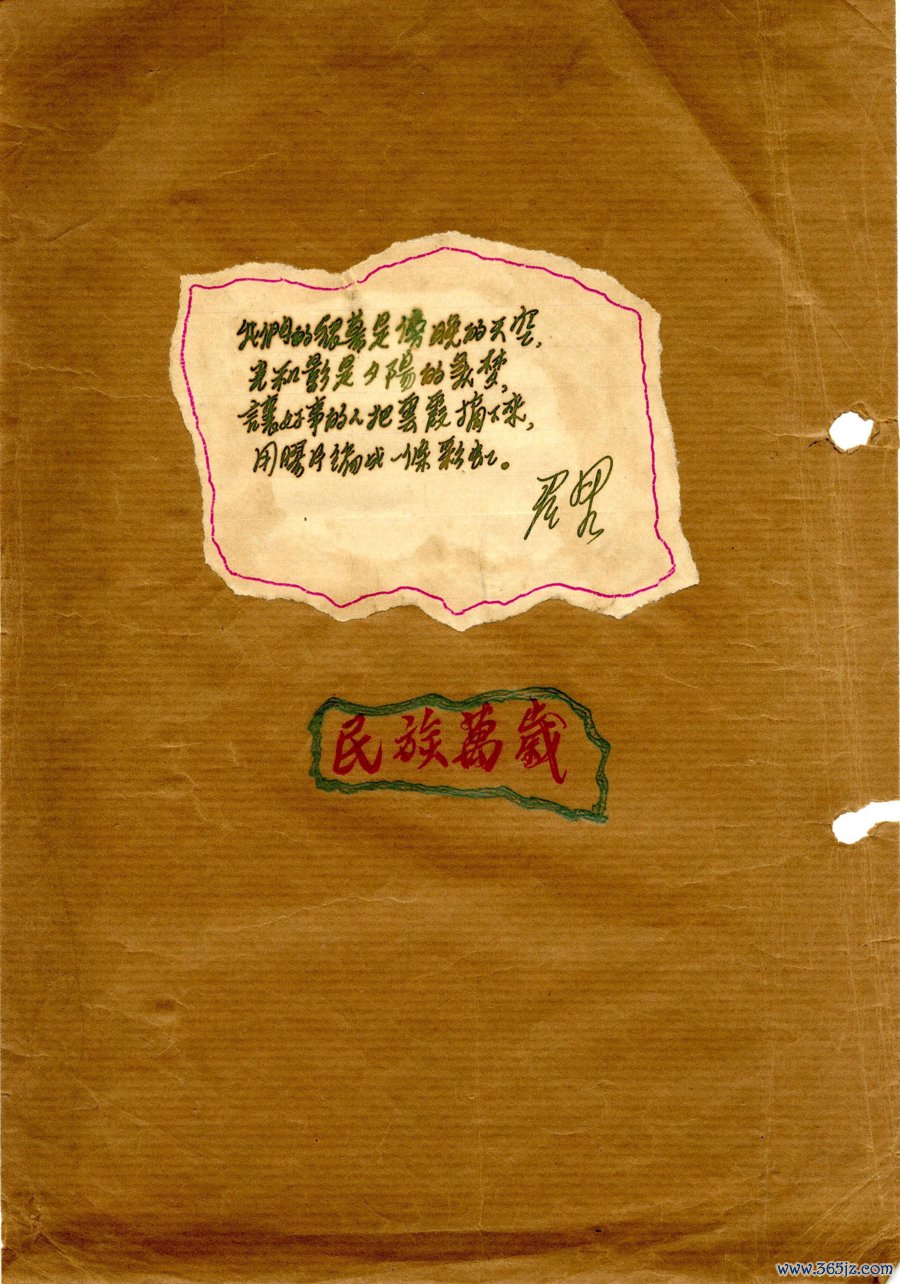 我們的銀幕是傍晚的天空，
光和影是夕陽的戲夢，
讓好事的人把雲霞摘下來，
用膠片編成一條彩虹。
君里
民族萬歲
www.365jz.com